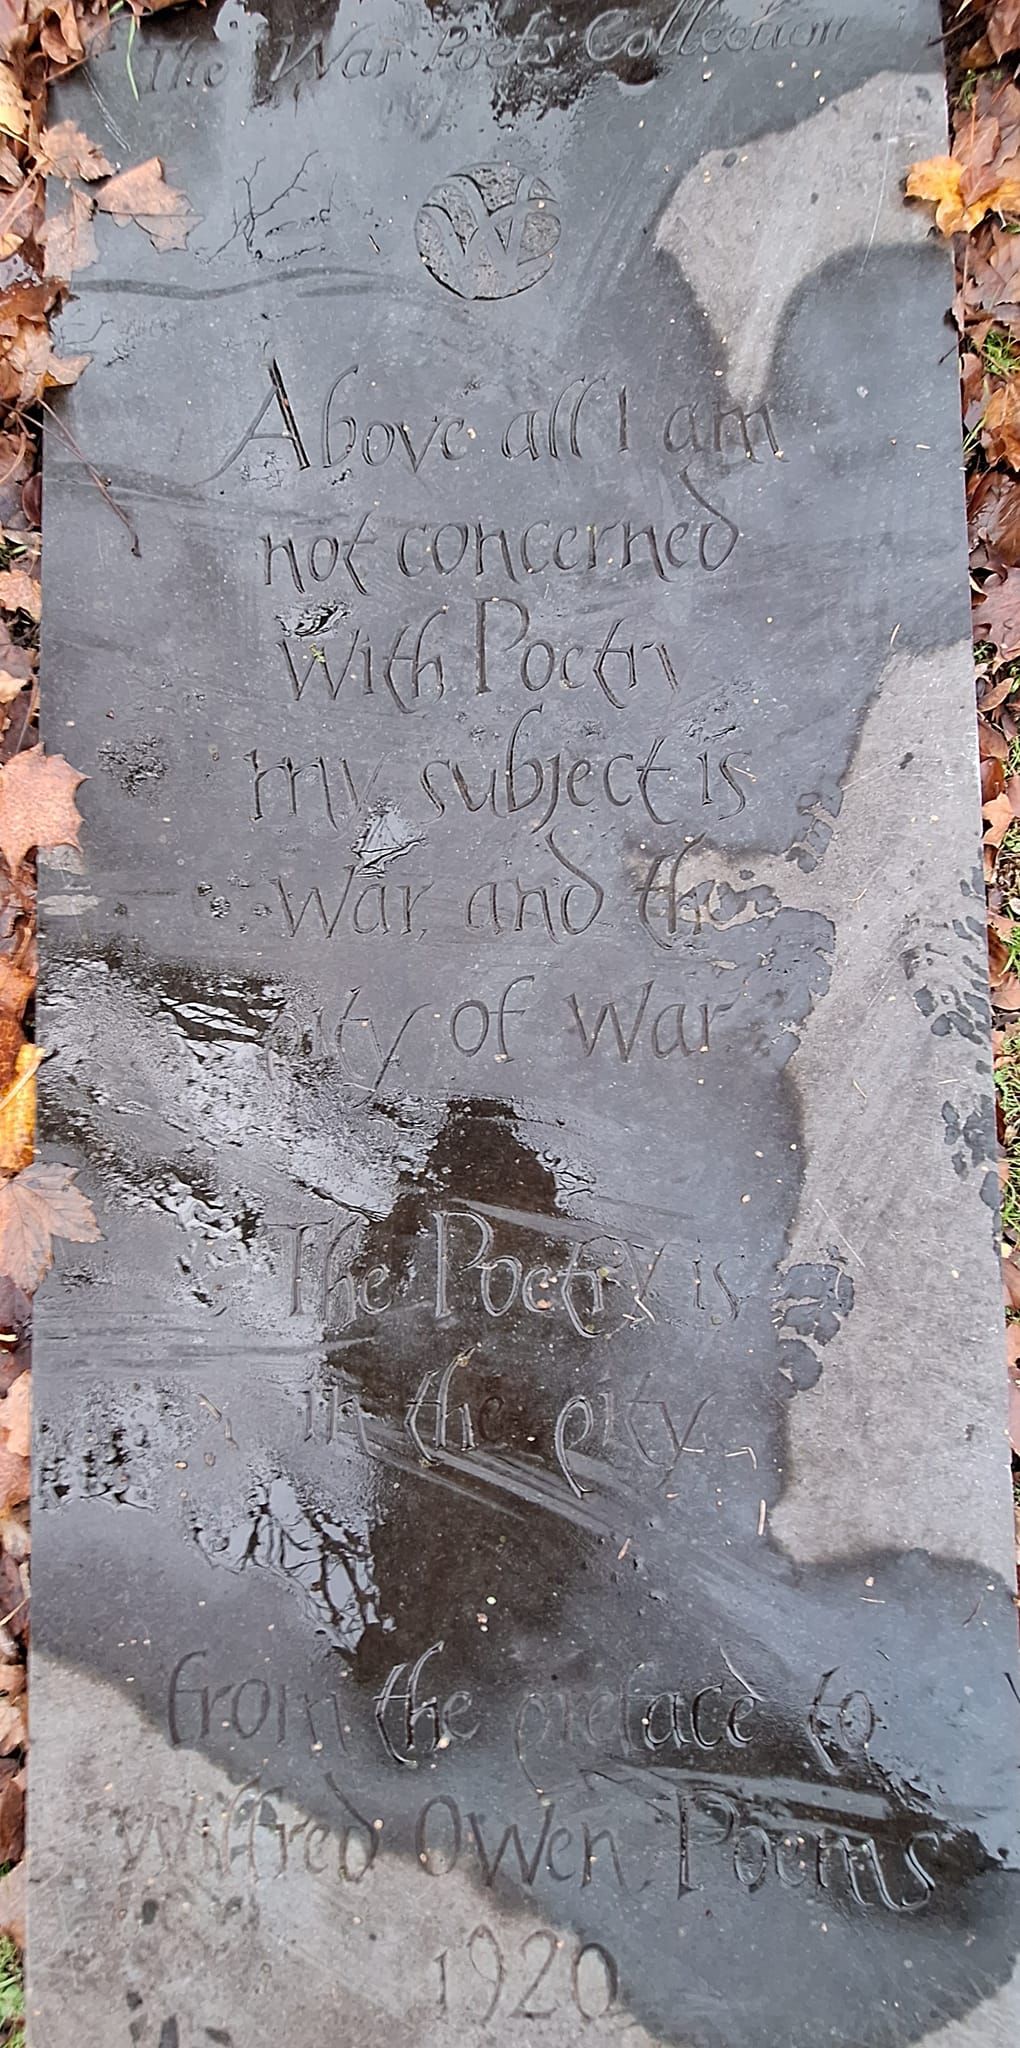 The War Poets Collection
W
Above all I am
not concerned
with Poetry
my subject is
War, and the
pity of War
The Poetry is
in the pity
from the preface to
Wilfred Owen Poems
1920